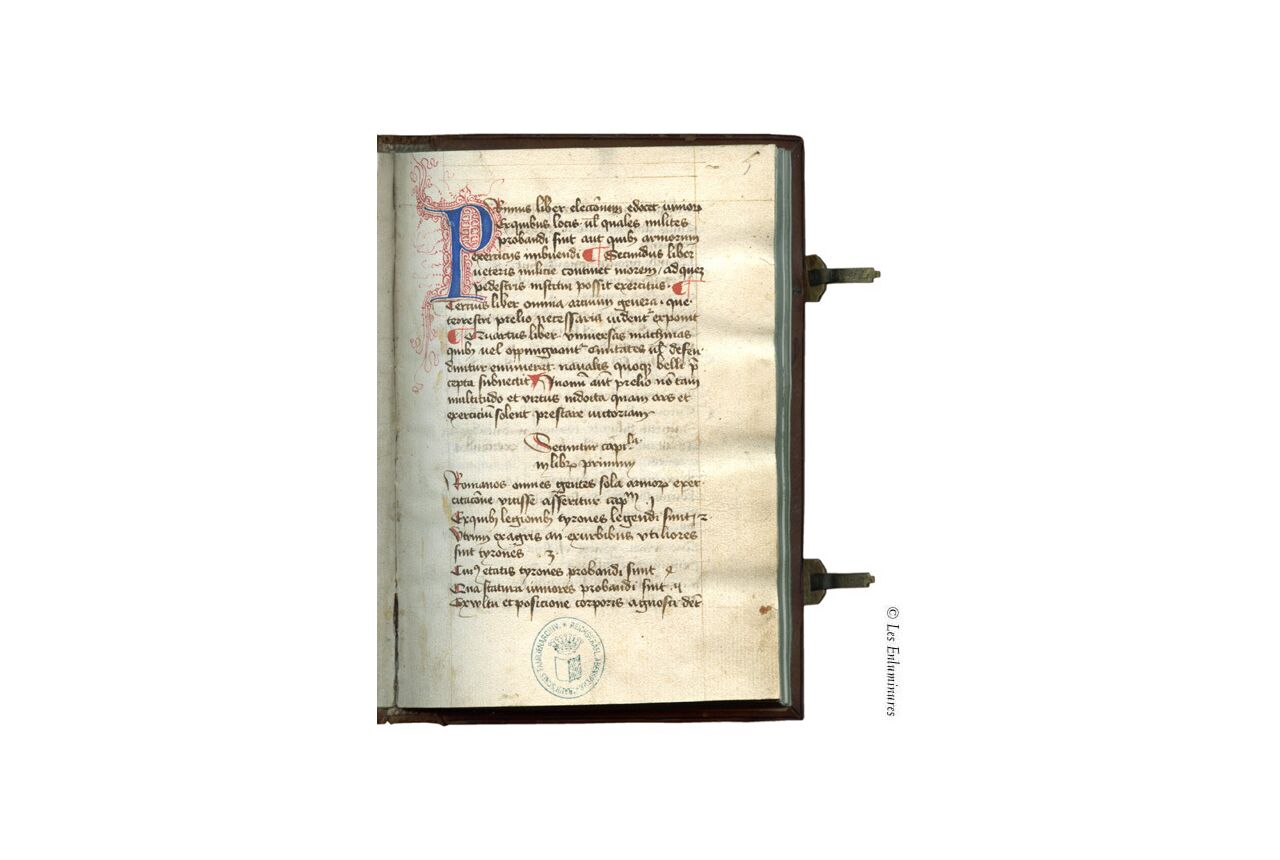 5
Primus liber electionem edocet iunior
Ex quibus locis ul quales milites
probandi sint aut quib armorum
exercicijs imbuendi ¶ Secundus liber
ueteris milicie continet morem ad quez
pedestris institui possit exercitus · ¶
Tercius liber omnia arcium genera · que
terrestri prelio necessaria uident exponit
¶ Quartus liber vniuersas machinas
quib uel oppugnant Ciuitates ul defen
duntur enumerat naualis quoque belli p
cepta subnectit ¶ In omi aut prelio no tam
multitudo et virtus indocta quam ars et
exerciciu solent prestare uictoriam
Secuntur capila
in libr primum
Romanos omnes gentes sola armor exer
citacone vicisse asseritur capm 1
Ex quib legionib tyrones legendi sunt 2
Vtrum ex agris an ex urbibus vtiliores
sint tyrones 3
Cuius etatis tyrones probandi sunt 4
Qua statura iuniores probandi sint 5
Ex wltu et posicione corporis agnosci det
© Les Enluminures